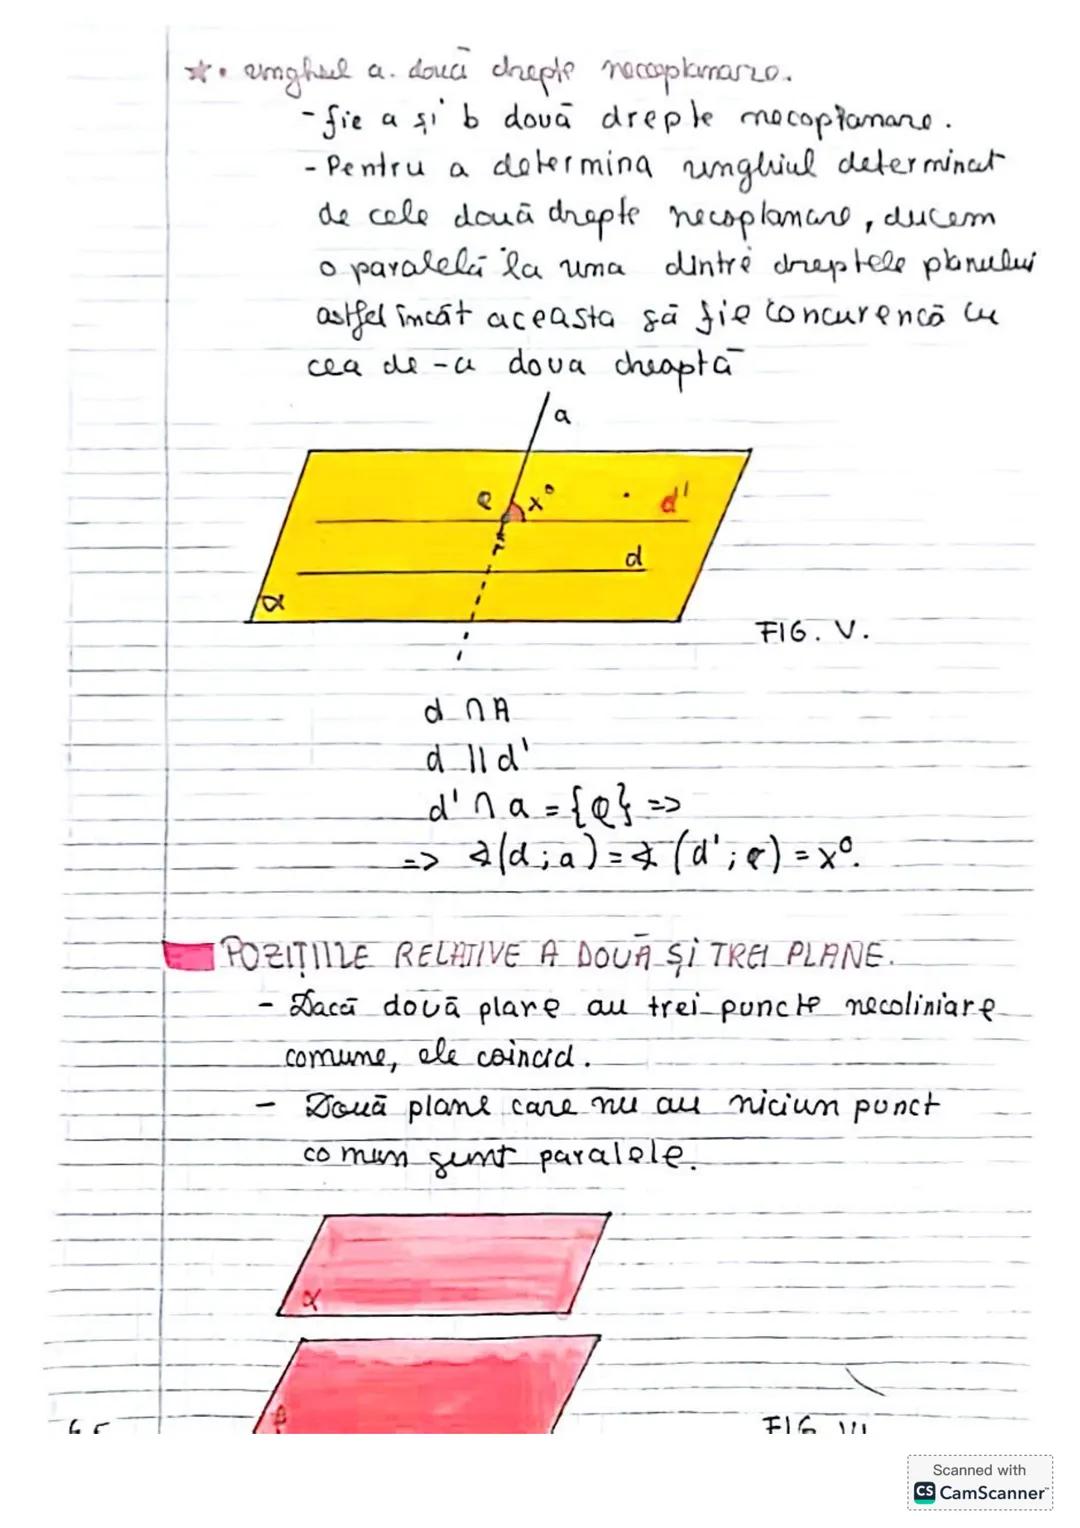 ☆. unghiul a. două drepte necoplanare.
- fie a și b două drepte necoplanare.
- Pentru a determina unghiul determinat
de cele două drepte necoplanare, ducem
o paralelă la una dintre dreptele planului
astfel încât aceasta să fie concurencă cu
cea de-a doua dreaptă
a
Q x° d'
d
α
FIG. V.
d ∩ A
d || d'
d' ∩ a = {Q} =>
=> ∢(d; a) = ∢(d'; e) = x°.
POZIȚIILE RELATIVE A DOUĂ ȘI TREI PLANE.
- Dacă două plane au trei puncte necoliniare
comune, ele coincid.
- Două plane care nu au niciun punct
comun sunt paralele.
α
β
FIG VI
Scanned with
CS CamScanner